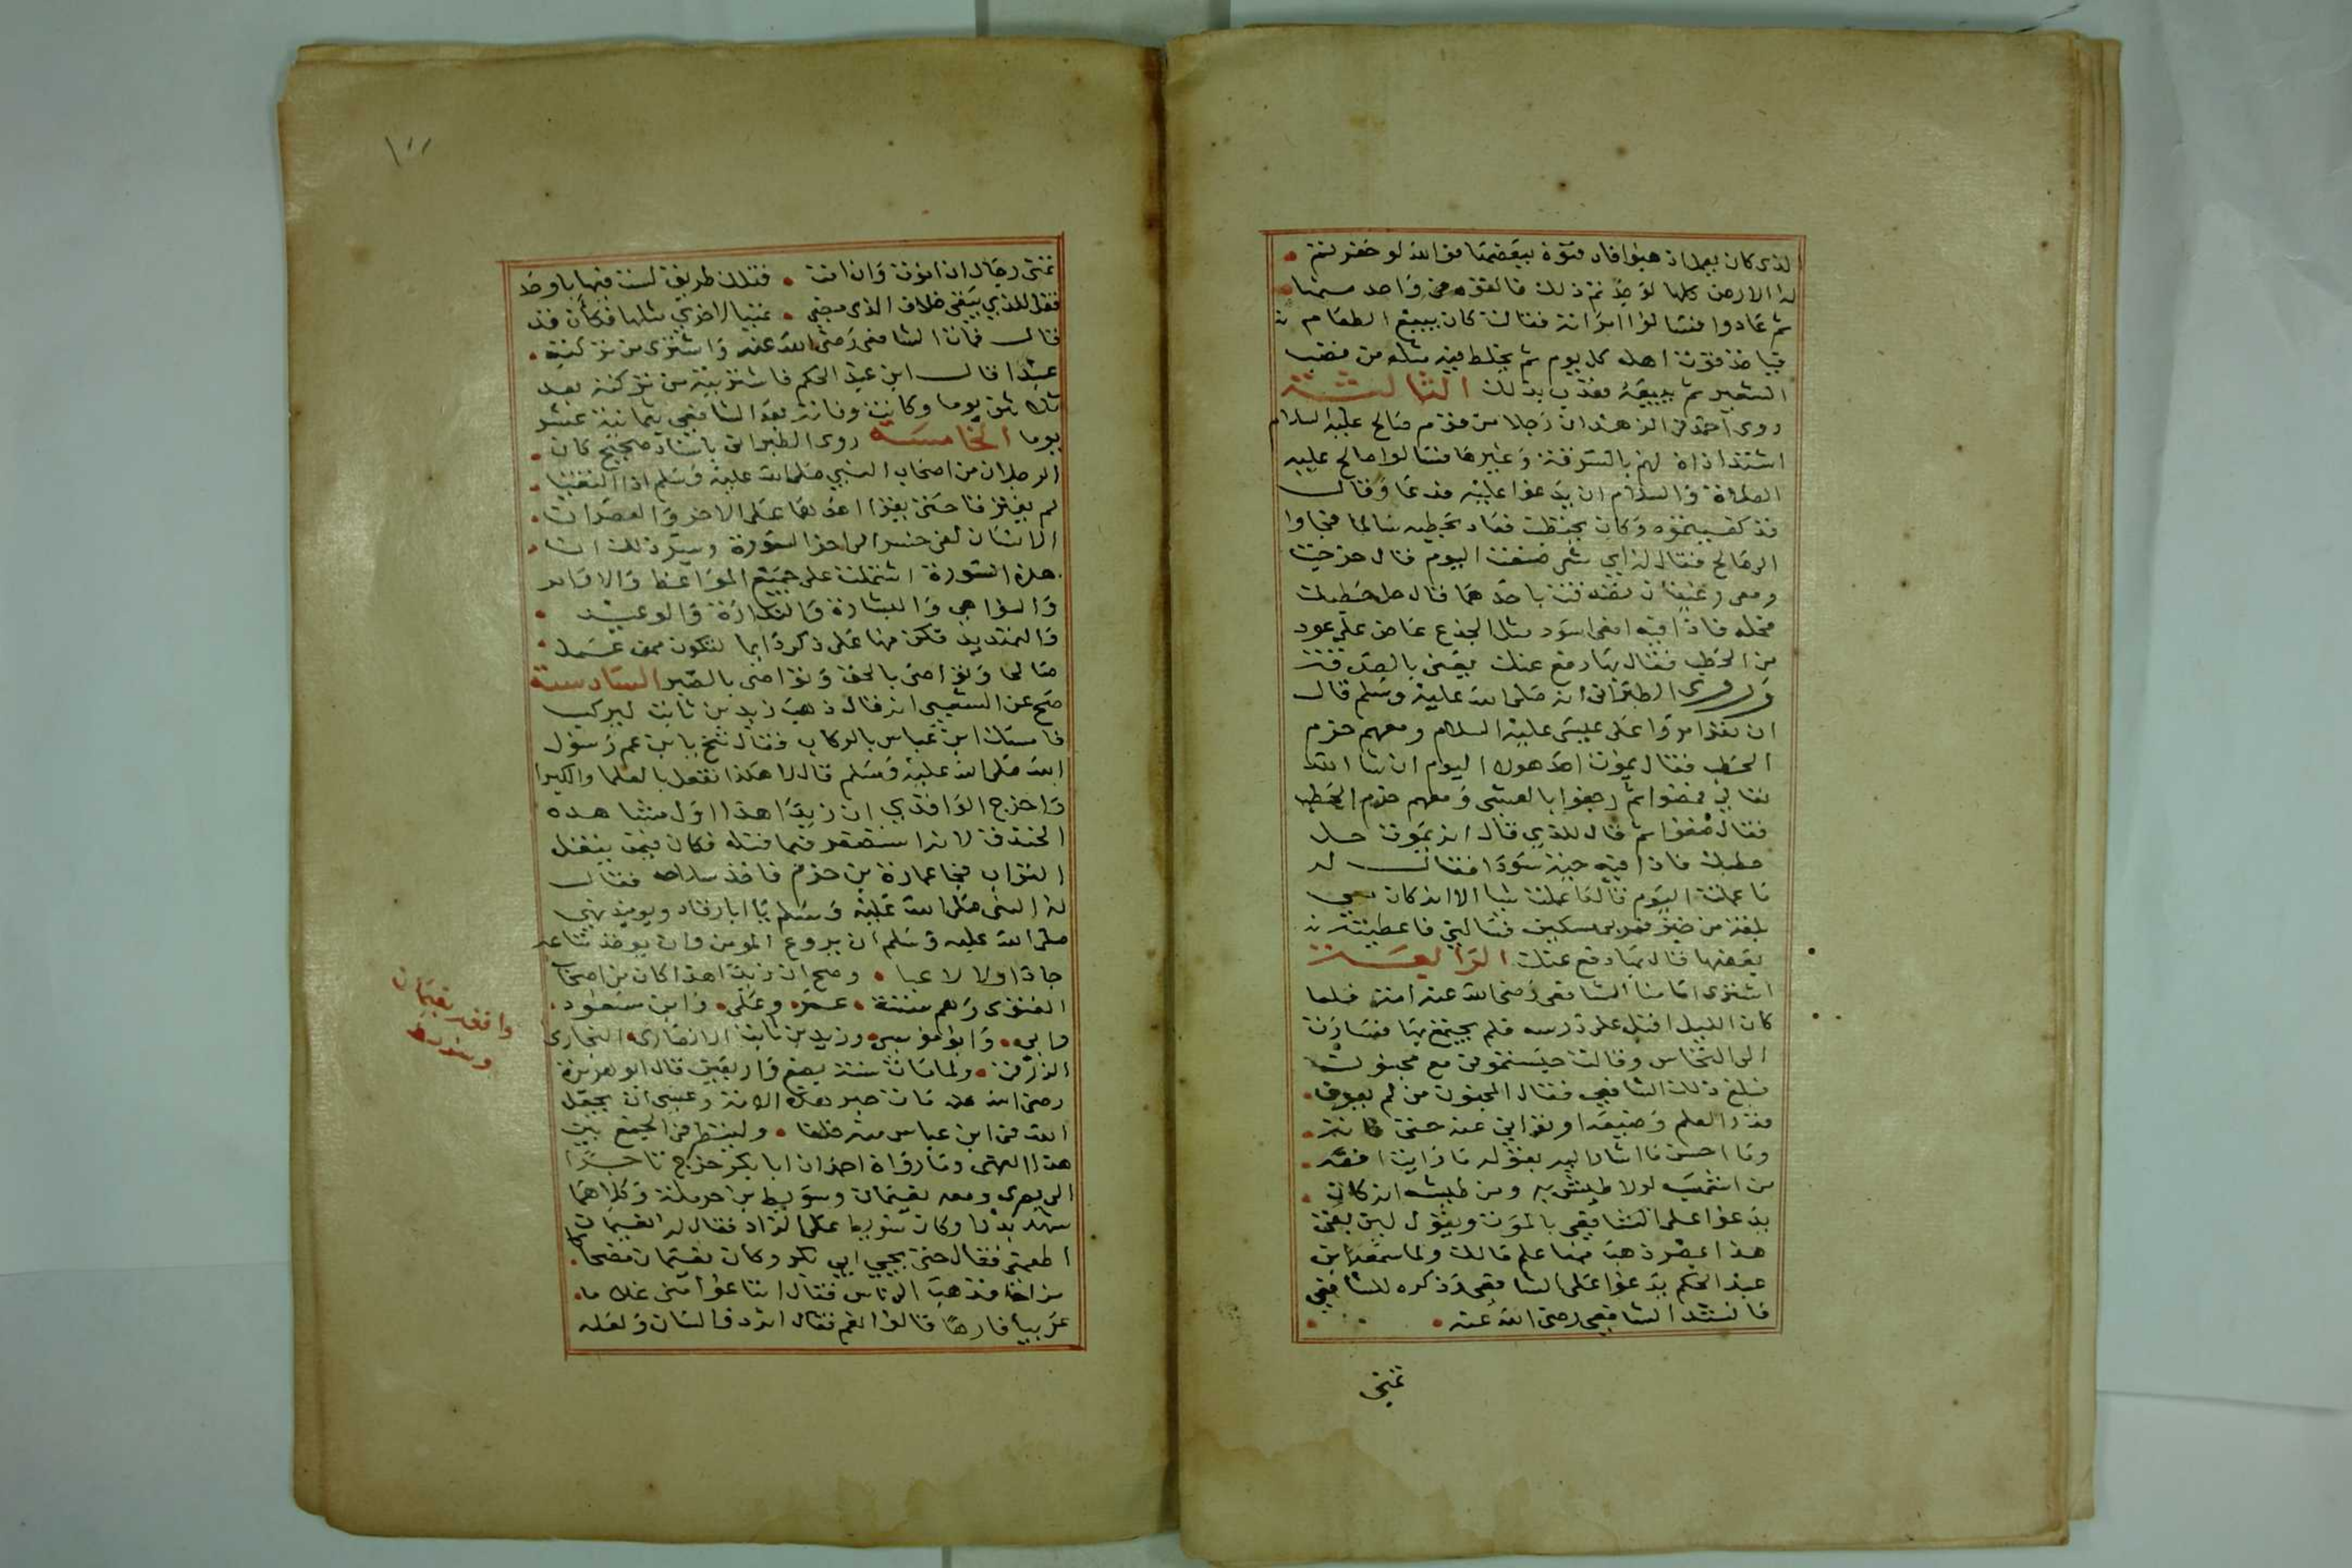 لذى كان يعمل اذهبوا فادفنوه ببعضها فوالله لو حفرتم
له الارض كلها لوجدتم ذلك فالقوه فى واحد منها
ثم عادوا فسالوا امراته فقالت كان يبيع الطعام
فياخذ قوت اهله كل يوم ثم يخلط فيه مثله من قصب
الشعير ثم يبيعه فعذب بذلك الثالثة
روى احمد فى الزهد ان رجلا من قوم صالح عليه السلام
اشتد اذاه لهم بالسرقة وغيرها فسالوا صالح عليه
الصلاة والسلام ان يدعوا عليه فدعا وقال
قد كفيتموه وكان يحتطب فعاد بحطبه سالما فجاوا
الى صالح فقال له اي شى صنعت اليوم قال خرجت
ومعى رغيفان تصدقت باحدهما قال حل حطبك
فحله فاذا فيه افعى اسود مثل الجذع عاض على عود
من الحطب فقال بهذا دفع عنك يعنى بالصدقة
وروى الطبرانى انه صلى الله عليه وسلم قال
ان نفرا مروا على عيسى عليه السلام ومعهم حزم
الحطب فقال يموت احد هولا اليوم ان شا الله
تعالى فمضوا ثم رجعوا بالعشى ومعهم حزم الحطب
فقال ضعوا ثم قال للذي قال انه يموت حل
حطبك فاذا فيه حية سودا فقال له
ما عملت اليوم قال ما عملت شيا الا انه كان معي
فلقة من خبز فمر بى مسكين فسالنى فاعطيته
بعضها قال بها دفع عنك الرابعة
اشترى امامنا الشافعى رضى الله عنه امة فلما
كان الليل اقبل على درسه فلم يجتمع بها فصارت
الى النخاس وقالت حبستمونى مع مجنون
فبلغ ذلك الشافعي فقال المجنون من لم يعرف
قدر العلم وضيعه او توانى عنه حتى فاته
وما احسن ما اشار اليه بقوله ما رايت افقه
من اشهب لولا طيش به ومن طيشه انه كان
يدعوا على الشافعي بالموت ويقول لين بقى
هذا بمصر ذهب فينا علم مالك ولما سمعه ابن
عبد الحكم يدعوا على الشافعى وذكره للشافعي
فانشد الشافعي رضى الله عنه
تمنى
١٠٠
تمنى رجال ان اموت وان امت فتلك طريق لست فيها باوحد
فقل للذي يبقى خلاف الذى مضى تهيا لاخري مثلها فكأن قد
قال فمات الشافعى رضى الله عنه واشترى من تركته
عبدا قال ابن عبد الحكم فاشتريته من تركته بعد
ثلاثين يوما وكانت وفاته بعد الشافعي بثمانية عشر
يوما الخامسة روى الطبرانى باسناد صحيح كان
الرجلان من اصحاب النبي صلى الله عليه وسلم اذا التقيا
لم يفترقا حتى يقرا احدهما على الاخر والعصر ان
الانسان لفى خسر الى اخر السورة وسر ذلك ان
هذه السورة اشتملت على جميع المواعظ والاوامر
والنواهي والبشارة والنذارة والوعيد
والتهديد فكن منها على ذكر دايما لتكون ممن عمل
صالحا وتواصى بالحق وتواصى بالصبر السادسة
صح عن الشعبي انه قال ذهب زيد بن ثابت ليركب
فامسك ابن عباس بالركاب فقال تنح يا ابن عم رسول
الله صلى الله عليه وسلم قال لا هكذا نفعل بالعلما والكبرا
واخرج الواقدي ان زيدا هذا اول مشاهده
الخندق لانه استصغر فيما قبله فكان فيمن ينقل
التراب فجا عمارة بن حزم فاخذ سلاحه فقال
له النبى صلى الله عليه وسلم يا ابا رقاد ويوميذ نهي
صلى الله عليه وسلم ان يروع المومن وان يوخذ متاعه
جادا ولا لاعبا وصح ان زيدا هذا كان من اصحاب
الفتوى وهم ستة عمر وعلى وابن مسعود
وابي وابو موسى وزيد بن ثابت الانصارى النجارى
ولما مات سنة بضع واربعين قال ابو هريرة
رضى الله عنه مات حبر هذه الامة وعسى ان يجعل
الله فى ابن عباس منه خلفا ولينظر فى الجمع بين
هذا النهى وما رواه احمد ان ابا بكر خرج تاجرا
الى بصرى ومعه نعيمان وسويبط بن حرملة وكلاهما
شهد بدرا وكان سويبط على الزاد فقال له النعيمان
اطعمنى فقال حتى يجيي ابي بكر وكان نعيمان مضحاكا
مزاحا فذهب الى ناس فقال ابتاعوا منى غلاما
عربيا فارها قالوا نعم فقال انه ذو لسان ولعله
واقعة نعيمان
وسويبط